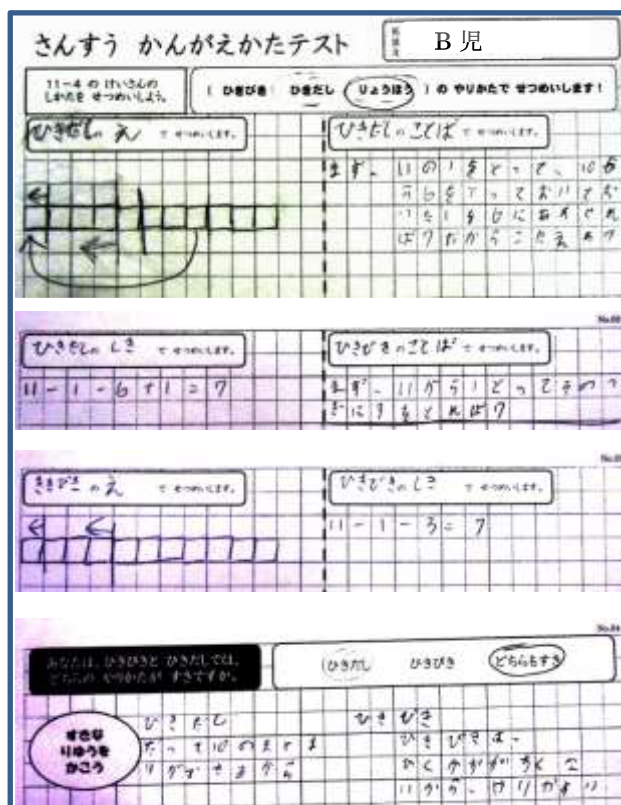 さんすう かんがえかたテスト
B 児
11-4 の けいさんの
しかたを せつめいしよう。
( ひきひき ひきだし りょうほう ) の やりかたで せつめいします!
ひきだしの え で せつめいします。
ひきだしのことば で せつめいします。
まず、11の1をとって、10か
ら6をとっておいてお
いた1を6にあわせれ
ば7だからこたえわ7
No.00
ひきだしの しき で せつめいします。
ひきひきのことば で せつめいします。
11-1-6+1=7
まず、11から1とってそのつ
ぎに3をとれば7
ひきひき の え で せつめいします。
ひきひきの しき で せつめいします。
11-1-3=7
あなたは、ひきひきと ひきだしでは、
どちらの やりかたが すきですか。
(ひきだし ひきひき どちらもすき
すきな
りゆうを
かこう
ひきだし
だって10のまとま
りができるから
ひきひき
ひきひきは、